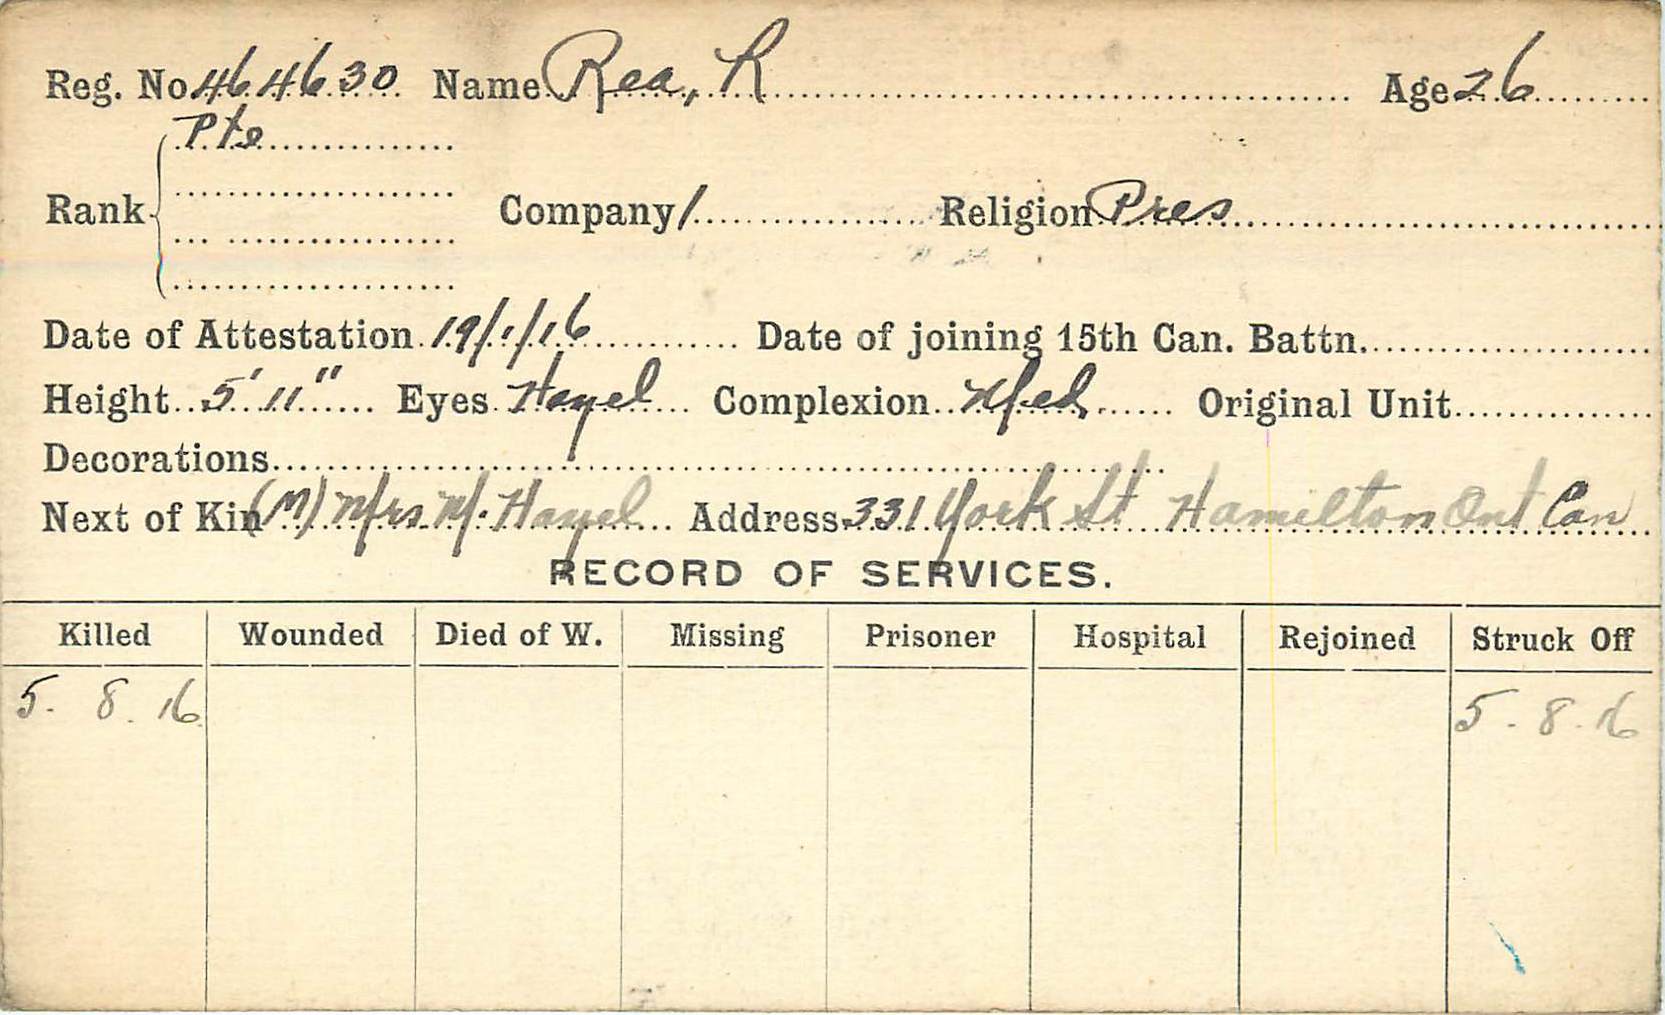 Reg. No 464630 Name Rea, R Age 26
Pte
Rank Company 1 Religion Pres
Date of Attestation 19/1/16 Date of joining 15th Can. Battn.
Height 5' 11" Eyes Hazel Complexion Med. Original Unit
Decorations
Next of Kin (M) Mrs M. Hazel Address 331 York St Hamilton Ont Can
RECORD OF SERVICES.
Killed Wounded Died of W. Missing Prisoner Hospital Rejoined Struck Off
5. 8. 16 5. 8. 16